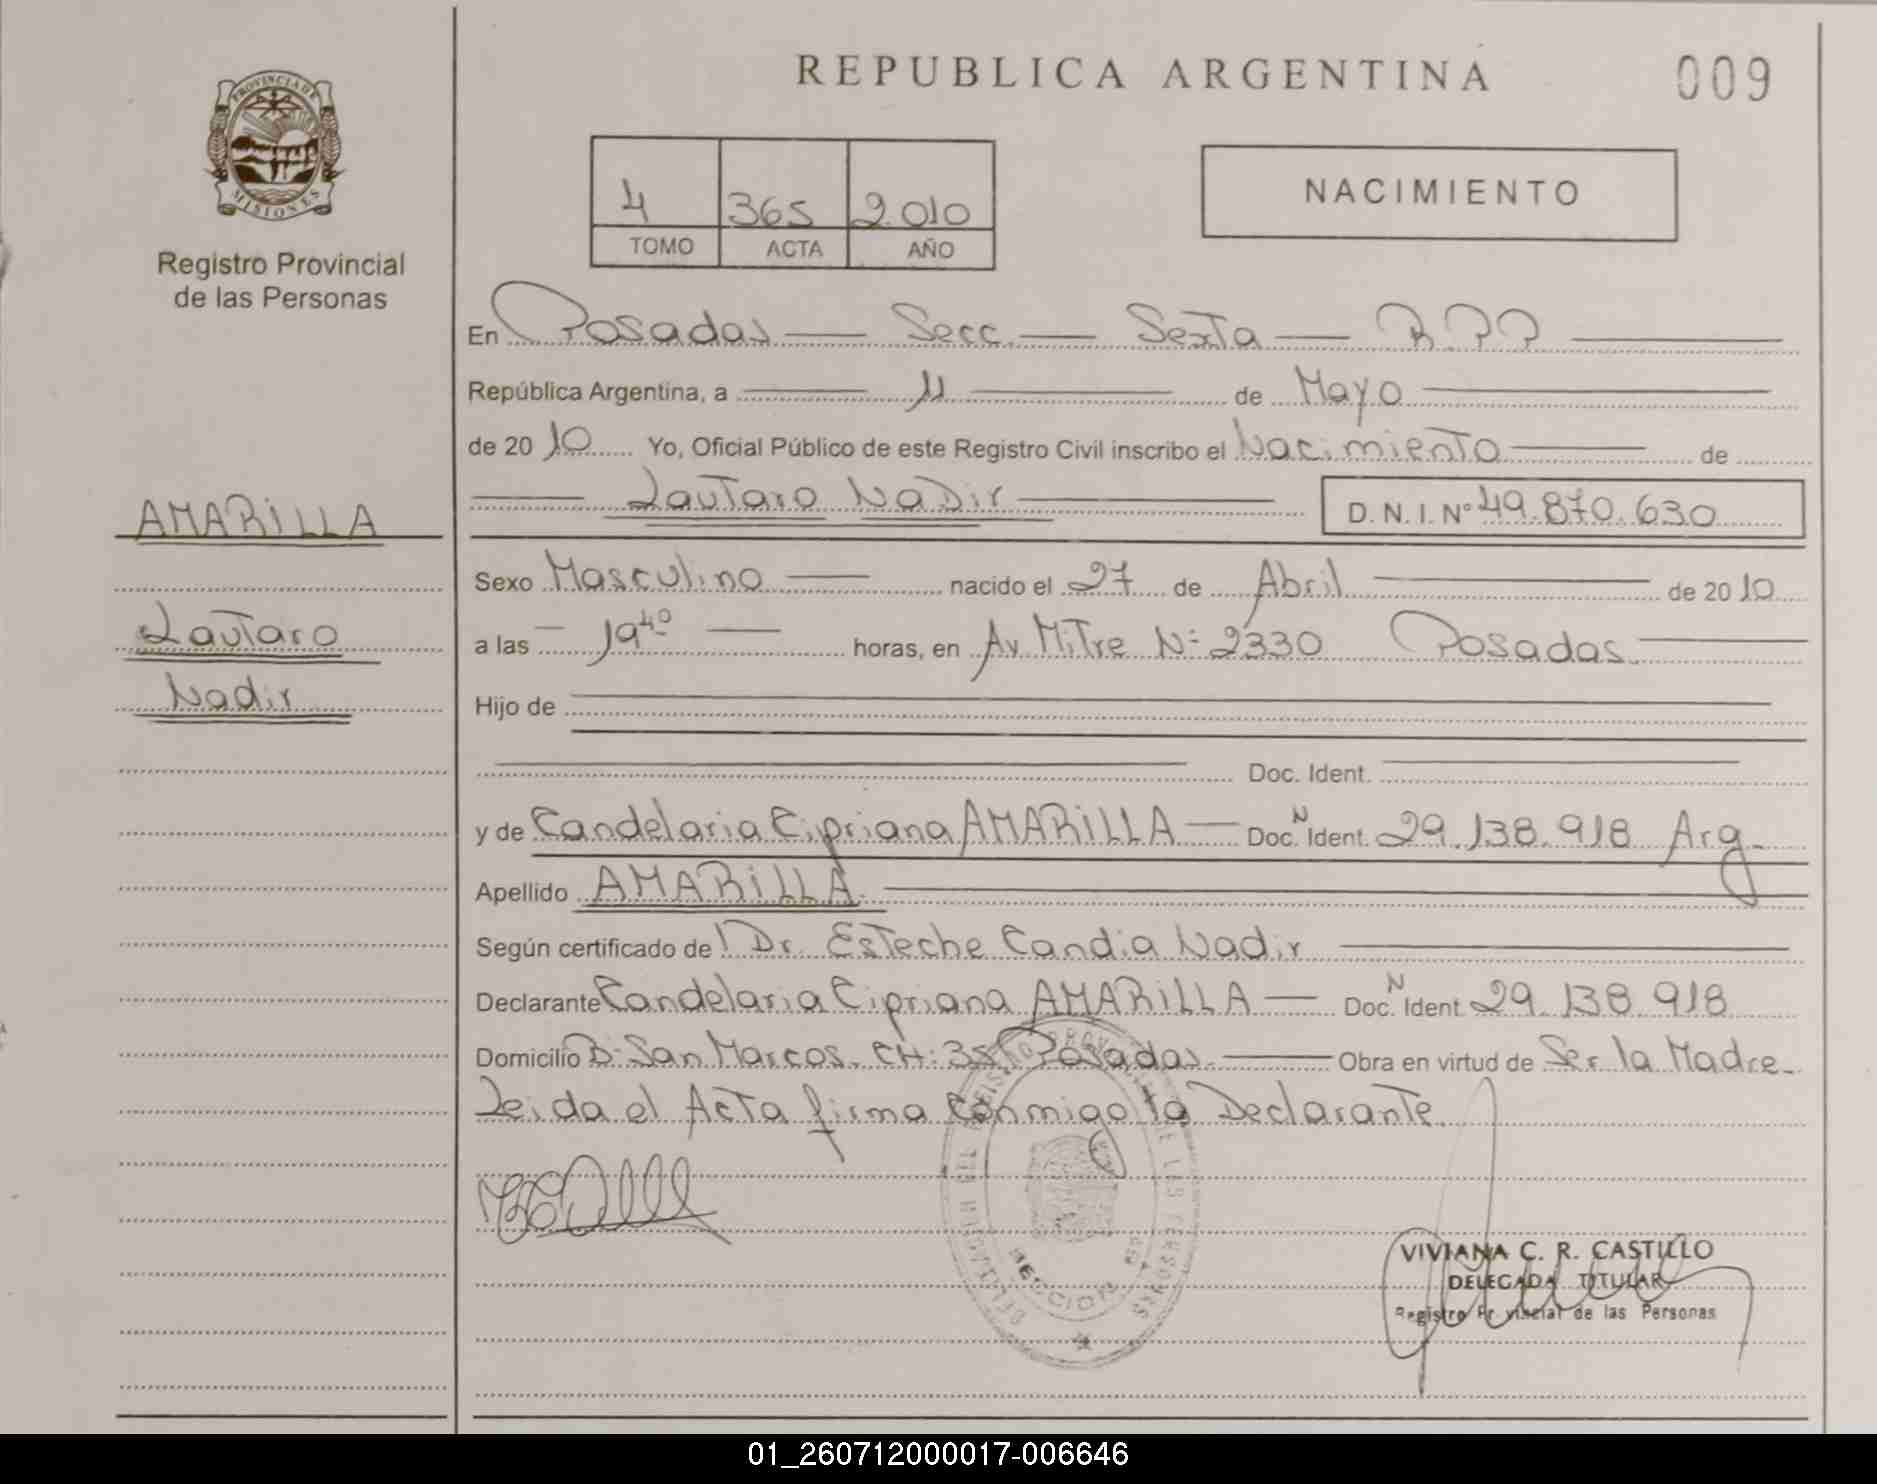 REPUBLICA ARGENTINA
009
PROVINCIA DE
MISIONES
Registro Provincial
de las Personas
4 365 2.010
TOMO ACTA AÑO
NACIMIENTO
En Posadas Secc. Sexta R.P.P
República Argentina, a 11 de Mayo
de 2010 Yo, Oficial Público de este Registro Civil inscribo el Nacimiento de
Lautaro Nadir D.N.I. Nº 49.870.630
AMARILLA
Lautaro
Nadir
Sexo Masculino nacido el 27 de Abril de 2010
a las 19 40 horas, en Av Mitre Nº 2330 Posadas
Hijo de
Doc. Ident.
y de Candelaria Cipriana AMARILLA Doc. N Ident. 29.138.918 Arg.
Apellido AMARILLA
Según certificado de Dr. Esteche Candia Nadir
Declarante Candelaria Cipriana AMARILLA Doc. N Ident. 29.138.918
Domicilio Bº San Marcos. CH: 35 Posadas. Obra en virtud de Ser la Madre.
Leida el Acta firma conmigo la Declarante.
VIVIANA C. R. CASTILLO
DELEGADA TITULAR
Registro Pr vincial de las Personas
01_260712000017-006646